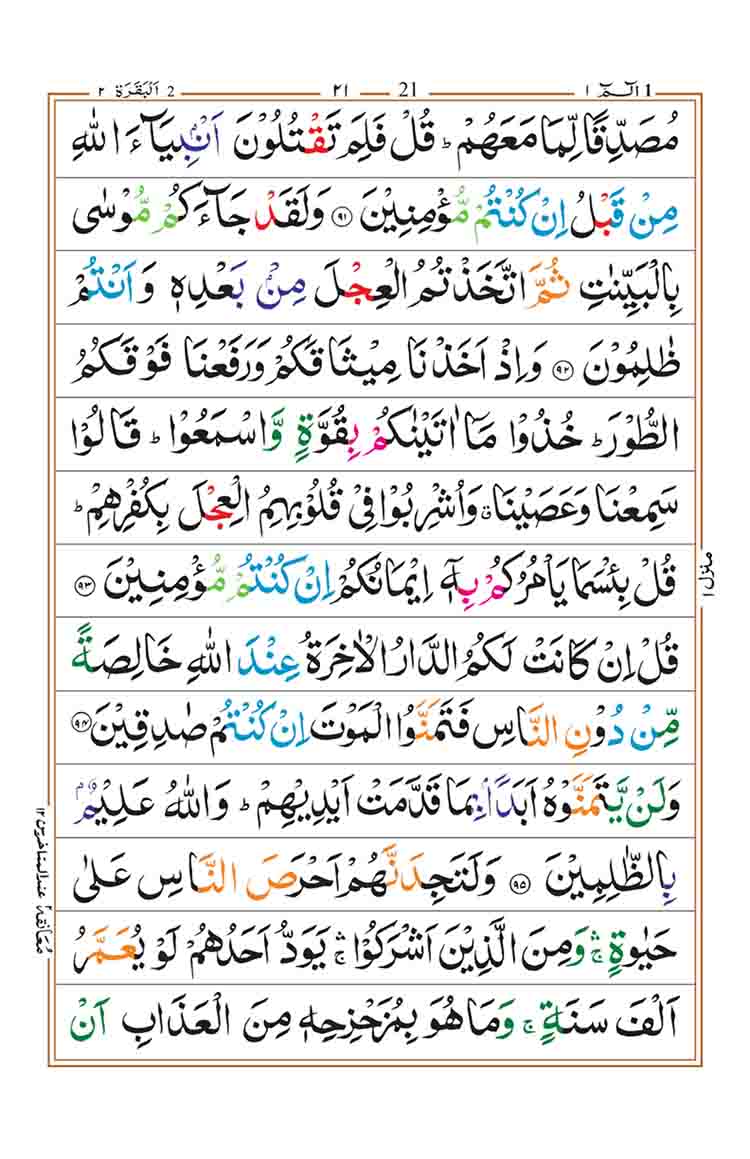 1 الٓمّٓ ١ 21 ٢١ 2 اَلْبَقَرَة ٢
مُصَدِّقًا لِّمَا مَعَهُمْ ؕ قُلْ فَلِمَ تَقْتُلُوْنَ اَنْۢبِيَآءَ اللّٰهِ
مِنْ قَبْلُ اِنْ كُنْتُمْ مُّؤْمِنِيْنَ ۝٩١ وَلَقَدْ جَآءَكُمْ مُّوْسٰى
بِالْبَيِّنٰتِ ثُمَّ اتَّخَذْتُمُ الْعِجْلَ مِنْۢ بَعْدِهٖ وَاَنْتُمْ
ظٰلِمُوْنَ ۝٩٢ وَاِذْ اَخَذْنَا مِيْثَاقَكُمْ وَرَفَعْنَا فَوْقَكُمُ
الطُّوْرَ ؕ خُذُوْا مَآ اٰتَيْنٰكُمْ بِقُوَّةٍ وَّاسْمَعُوْا ؕ قَالُوْا
سَمِعْنَا وَعَصَيْنَا ۗ وَاُشْرِبُوْا فِيْ قُلُوْبِهِمُ الْعِجْلَ بِكُفْرِهِمْ ؕ
قُلْ بِئْسَمَا يَاْمُرُكُمْ بِهٖٓ اِيْمَانُكُمْ اِنْ كُنْتُمْ مُّؤْمِنِيْنَ ۝٩٣
قُلْ اِنْ كَانَتْ لَكُمُ الدَّارُ الْاٰخِرَةُ عِنْدَ اللّٰهِ خَالِصَةً
مِّنْ دُوْنِ النَّاسِ فَتَمَنَّوُا الْمَوْتَ اِنْ كُنْتُمْ صٰدِقِيْنَ ۝٩٤
وَلَنْ يَّتَمَنَّوْهُ اَبَدًۢا بِمَا قَدَّمَتْ اَيْدِيْهِمْ ؕ وَاللّٰهُ عَلِيْمٌۢ
بِالظّٰلِمِيْنَ ۝٩٥ وَلَتَجِدَنَّهُمْ اَحْرَصَ النَّاسِ عَلٰى
حَيٰوةٍ ۛۚ وَمِنَ الَّذِيْنَ اَشْرَكُوْا ۛۚ يَوَدُّ اَحَدُهُمْ لَوْ يُعَمَّرُ
اَلْفَ سَنَةٍ ۚ وَمَا هُوَ بِمُزَحْزِحِهٖ مِنَ الْعَذَابِ اَنْ
منزل ١
معانقة ٢ عند المتاخرين ١٢